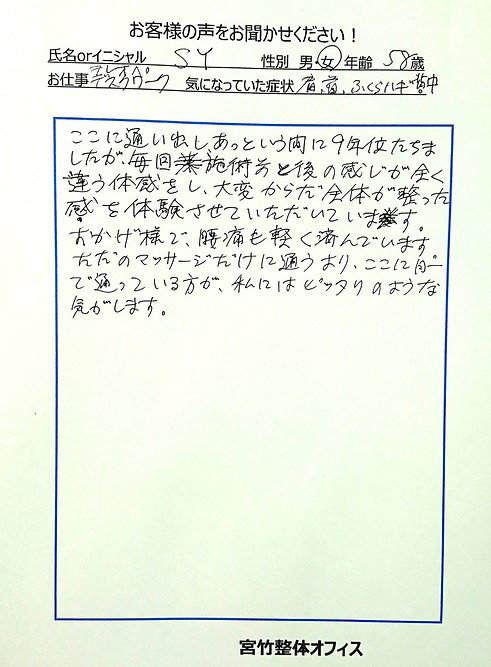 お客様の声をお聞かせください！
氏名orイニシャル SY 性別 男・女 年齢 58歳
お仕事 デスクワーク 気になっていた症状 肩、首、ふくらはぎ 背中
ここに通い出し、あっという間に9年位たちま
したが、毎回施術前と後の感じが全く
違う体感をし、大変からだ全体が整った
感を体験させていただいています。
おかげ様で、腰痛も軽く済んでいます
ただのマッサージだけに通うより、ここに
で通っている方が、私にはピッタリのような
気がします。
宮竹整体オフィス